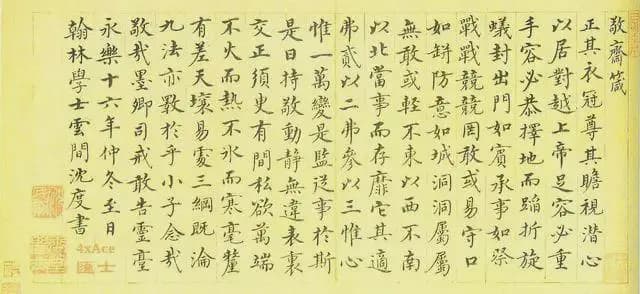 敬齋箴
正其衣冠尊其瞻視潛心
以居對越上帝足容必重
手容必恭擇地而蹈折旋
蟻封出門如賓承事如祭
戰戰兢兢罔敢或易守口
如缾防意如城洞洞屬屬
無敢或輕不東以西不南
以北當事而存靡它其適
弗貳以二弗參以三惟心
惟一萬變是監從事於斯
是曰持敬動靜無違表裏
交正須臾有間私欲萬端
不火而熱不氷而寒毫釐
有差天壤易處三綱既淪
九法亦斁於乎小子念哉
敬哉墨卿司戒敢告靈臺
永樂十六年仲冬至日
翰林學士雲間沈度書
4xAce